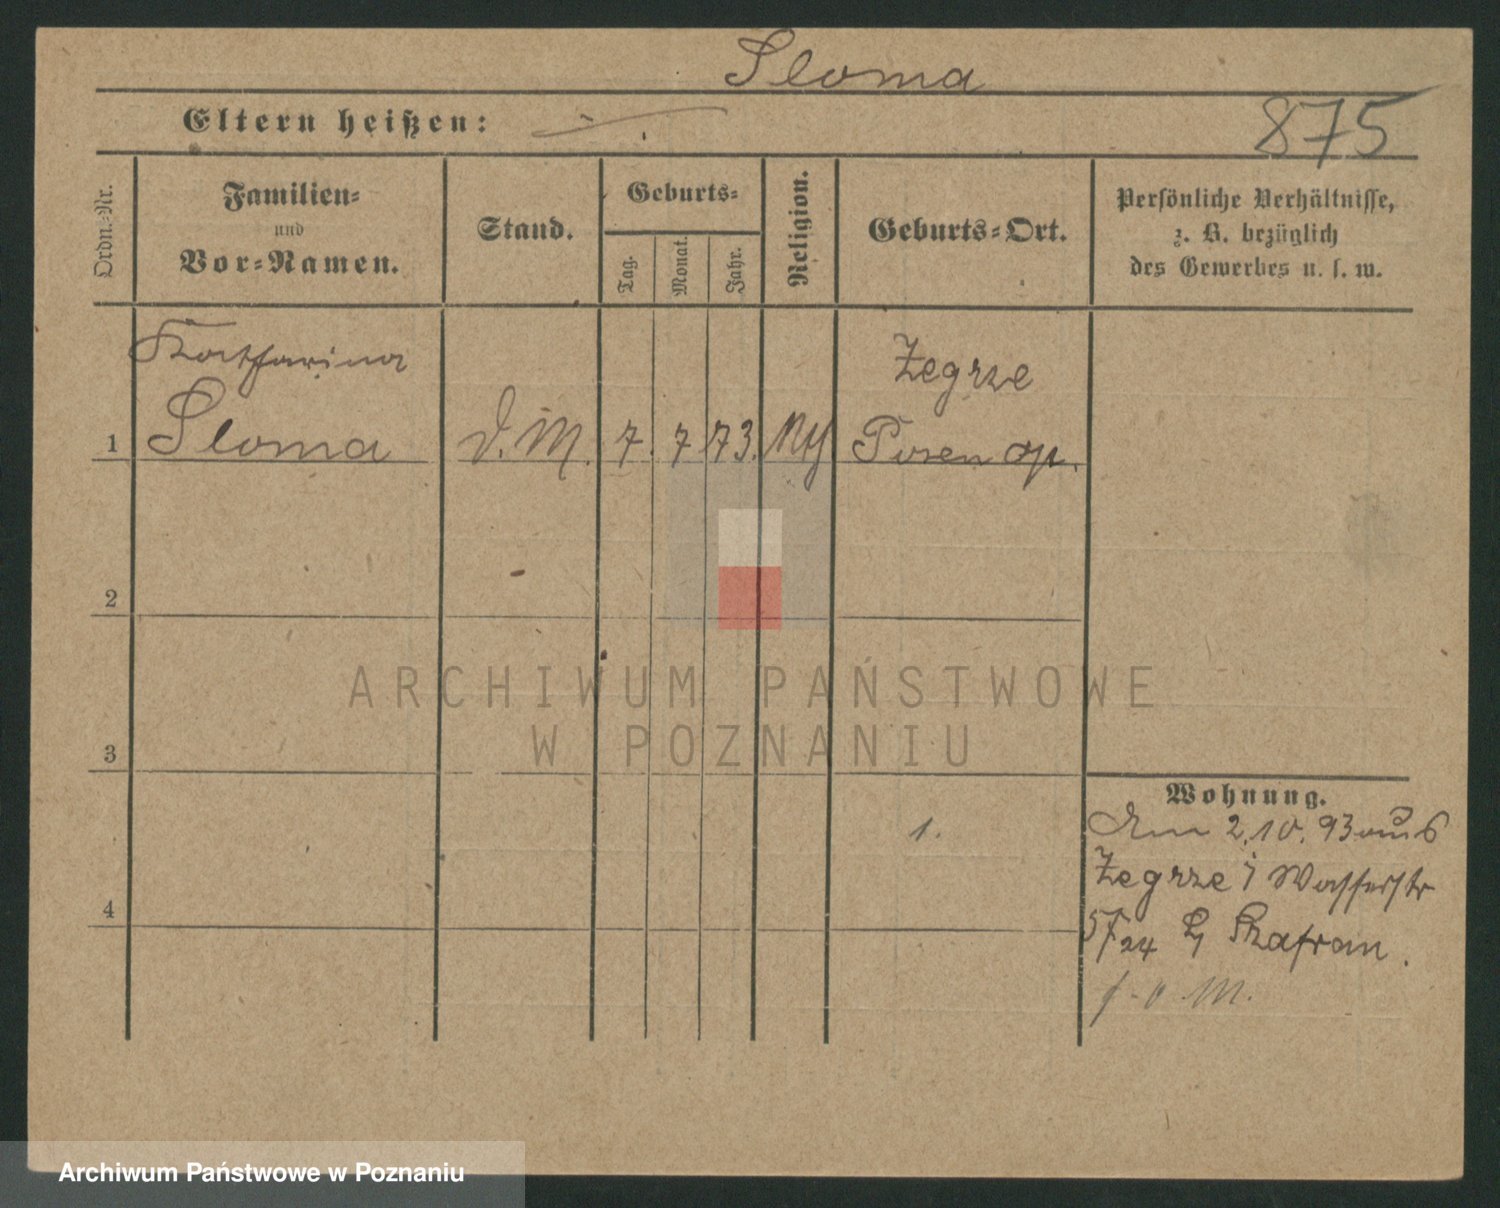 Sloma
Eltern heißen:
875
Ordn.-Nr.
Familien-
und
Vor-Namen.
Stand.
Geburts-
Tag.
Monat.
Jahr.
Religion.
Geburts-Ort.
Persönliche Verhältnisse,
z. B. bezüglich
des Gewerbes u. s. w.
Katharina
Sloma
1
D. M.
7.
7
73.
Kth
Zegrze
Posen Op.
2
3
4
1.
Wohnung.
Am 2.10.93 aus
Zegrze i Wasserstr
24
Szafran.
ARCHIWUM PAŃSTWOWE
W POZNANIU
Archiwum Państwowe w Poznaniu